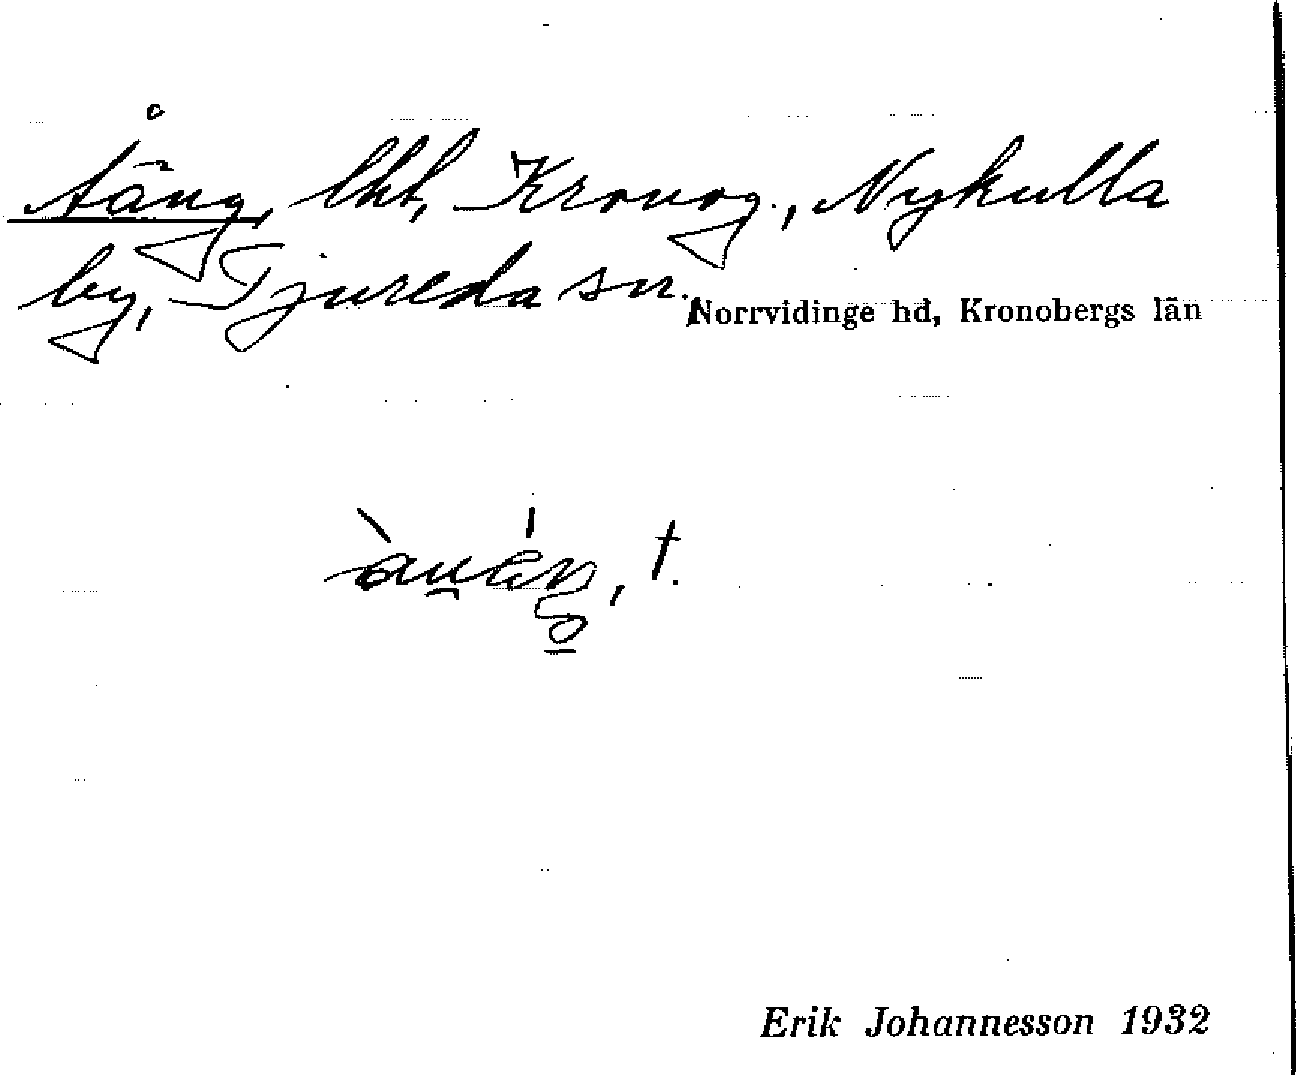 Åäng, lht, Kronog., Nykulla
by, Tjureda sn.
Norrvidinge hd, Kronobergs län
Erik Johannesson 1932